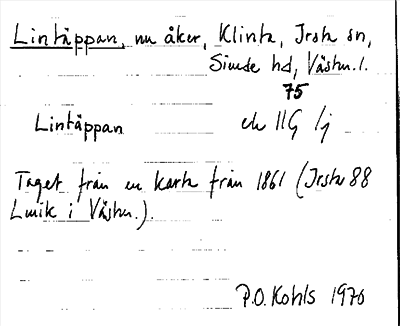 Lintäppan, nu åker, Klinta, Irsta sn,
Siende hd, Västm. l.
75
Lintäppan ek 11G 1j
Taget från en karta från 1861 (Irsta 88
Lmik i Västm.).
P.O. Kohls 1976